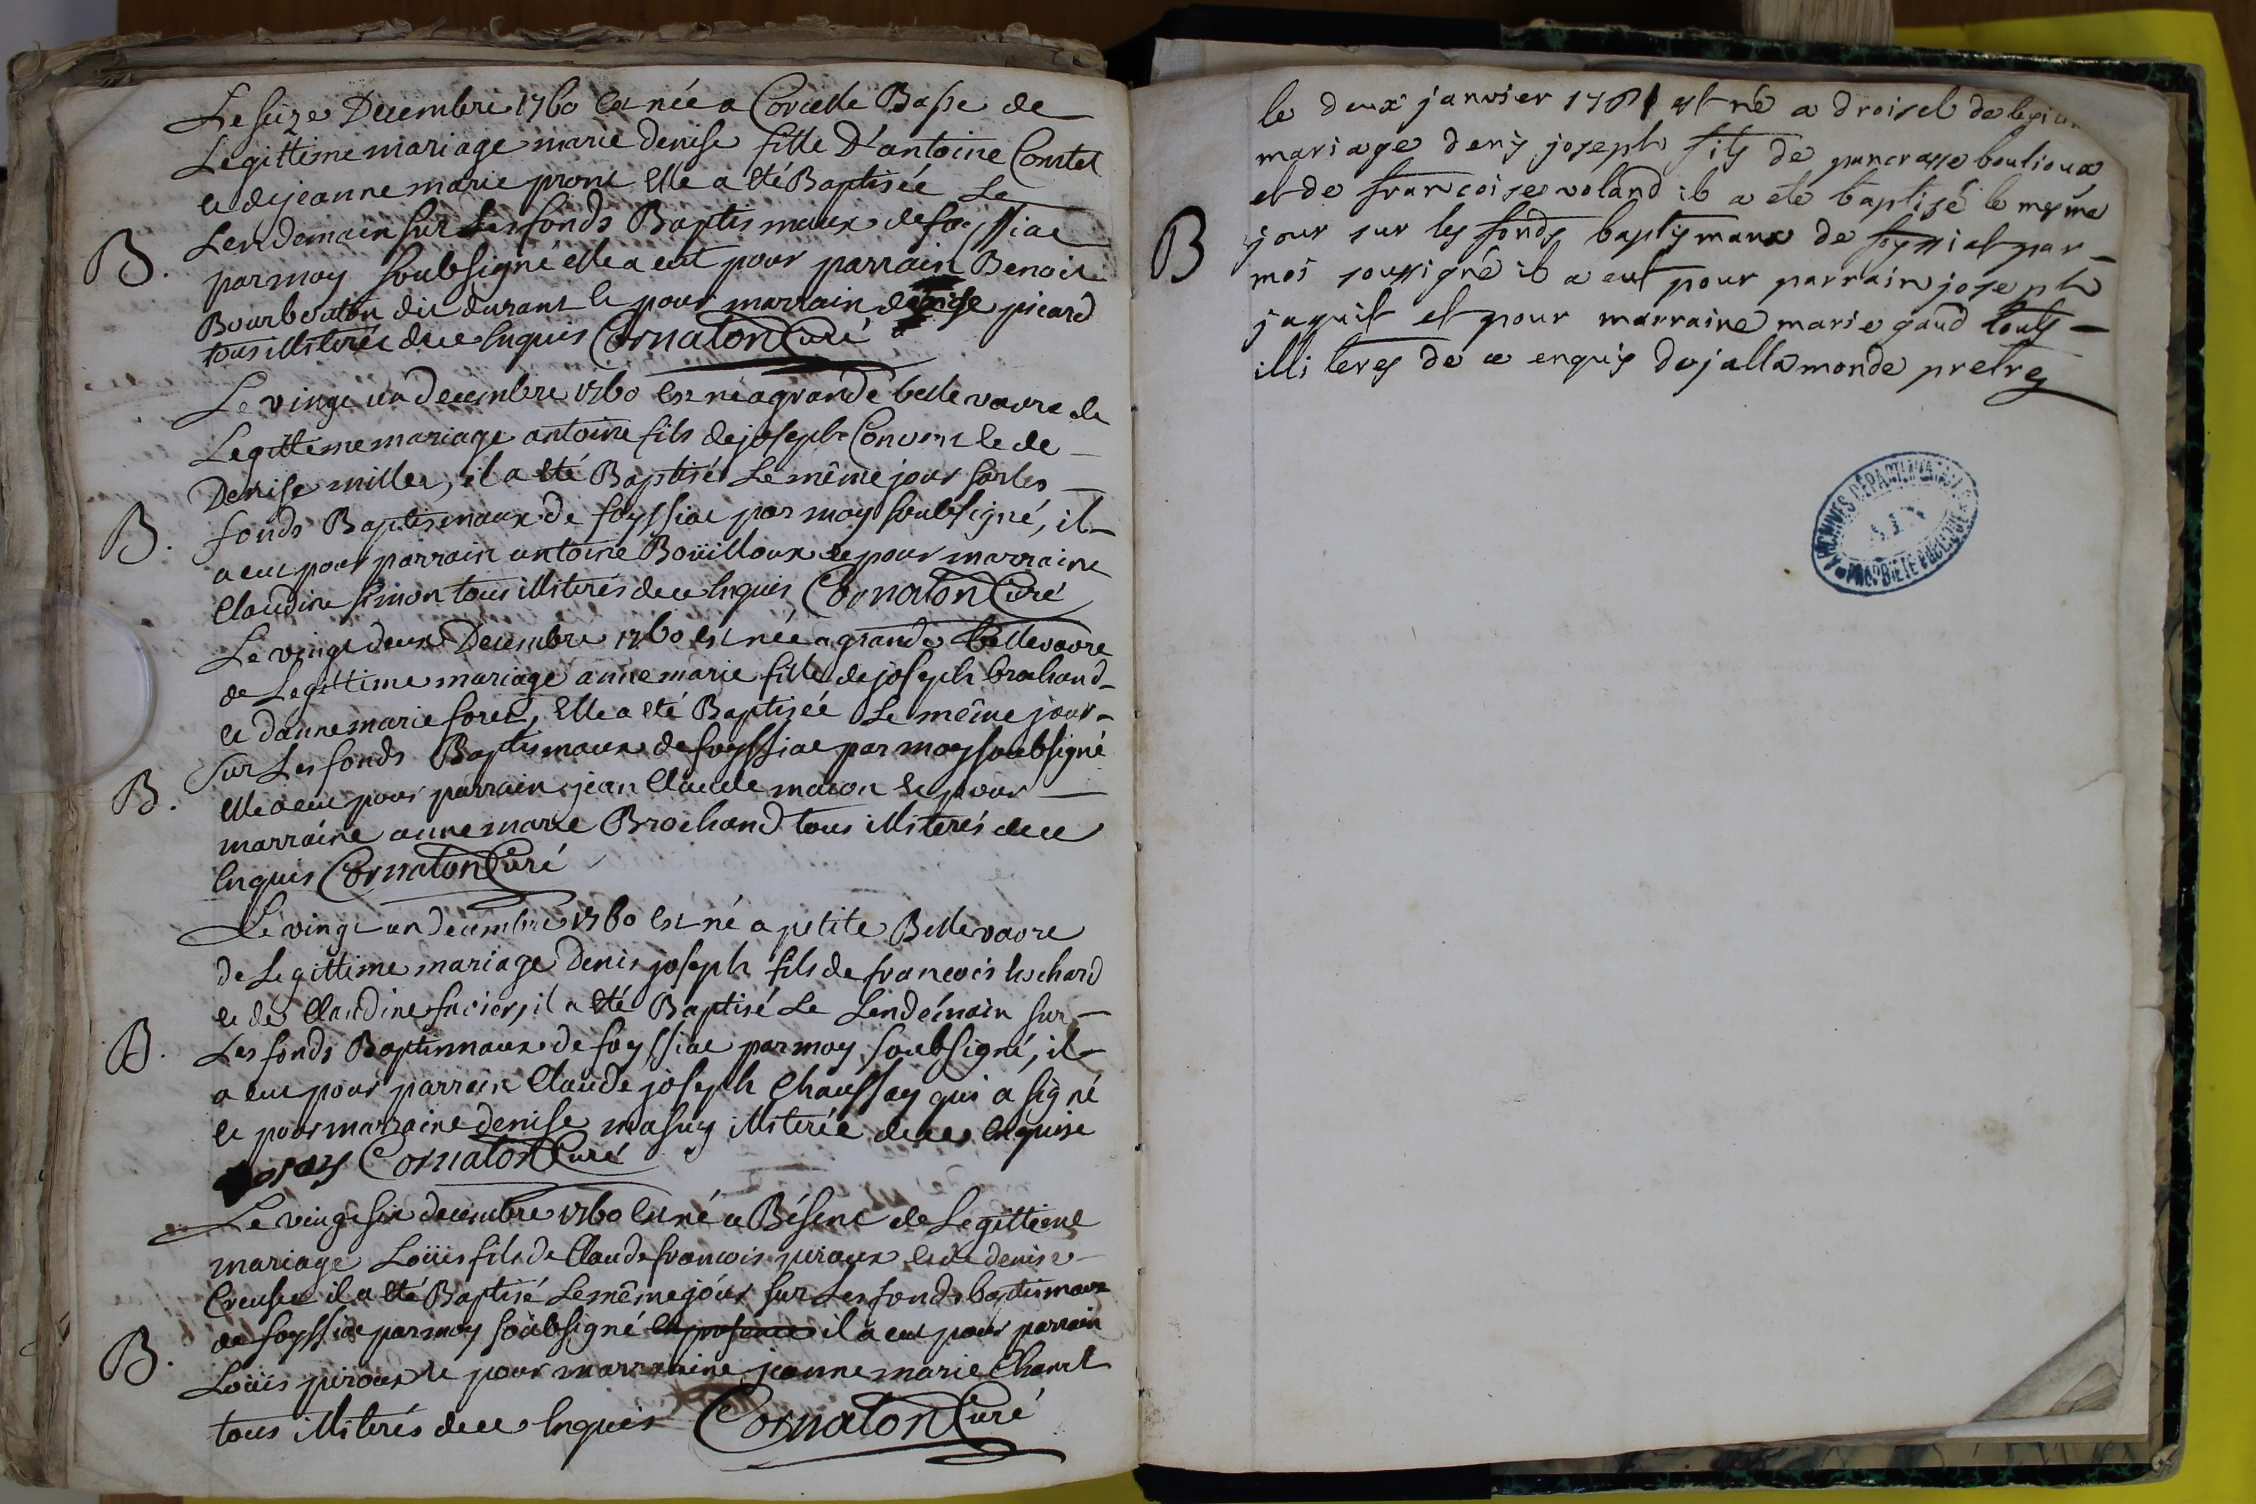 Le seize Decembre 1760 est née a Corcelle Basse de
Legittime mariage marie denise fille D'antoine Comtet
et de jeanne marie prost elle a été Baptisée Le
Lendemain sur Les fonds Baptismaux de foyssiac
B.
par moy soubsigné elle a eut pour parrain Benoit
Bourbouton dit durant et pour marrain denise picard
tous illiterés de ce enquis Cornaton Curé
Le vingt un decembre 1760 est né a grande bellevavre de
Legittime mariage antoine fils de joseph Convert et de
Denise millet, il a été Baptisé Le même jour sur les
B.
fonds Baptismaux de foyssiac par moy soubsigné, il
a eut pour parrain antoine Boüilloux et pour marraine
Claudine simon tous illiterés de ce enquis Cornaton Curé
Le vingt deux Decembre 1760 est née a grande Bellevavre
de Legittime mariage anne marie fille de joseph brochand
et d'anne marie foret, elle a été Baptizée Le même jour
sur Les fonds Baptismaux de foyssiac par moy soubsigné
B.
elle a eut pour parrain jean Claude mavon et pour
marraine anne marie Brochand tous illiterés de ce
enquis Cornaton Curé
Le vingt un decembre 1760 est né a petite Bellevavre
de Legittime mariage Denis joseph fils de francois
et de Claudine il a été Baptisé Le Lendemain sur
B.
Les fonds Baptismaux de foyssiac par moy soubsigné, il
a eut pour parrain Claude joseph Chaussay qui a signé
et pour marraine denise masuy illiterée de ce enquise
Cornaton Curé
Le vingt six decembre 1760 est né a Bésenc de Legittime
mariage Loüis fils de Claude francois piroux et de denise
il a été Baptisé Le même jour sur Les fonds baptismaux
de foyssiac par moy soubsigné en presence il a eut pour parrain
B.
Loüis piroux et pour marraine jeanne marie Chanel
tous illiterés de ce enquis Cornaton Curé
le deux janvier 1761 est né a droisel de legi
mariage denis joseph fils de pancrasse boulioux
et de francoise voland il a eté baptisé le mesme
B
jour sur les fonds baptismaux de foyssiat par
moi soussigné il a eut pour parrain joseph
jaquit et pour marraine marie gaud touts
illiteres de ce enquis dujallamonde pretre
ARCHIVES DÉPARTEMENTALES
PROPRIETE PUBLIQUE